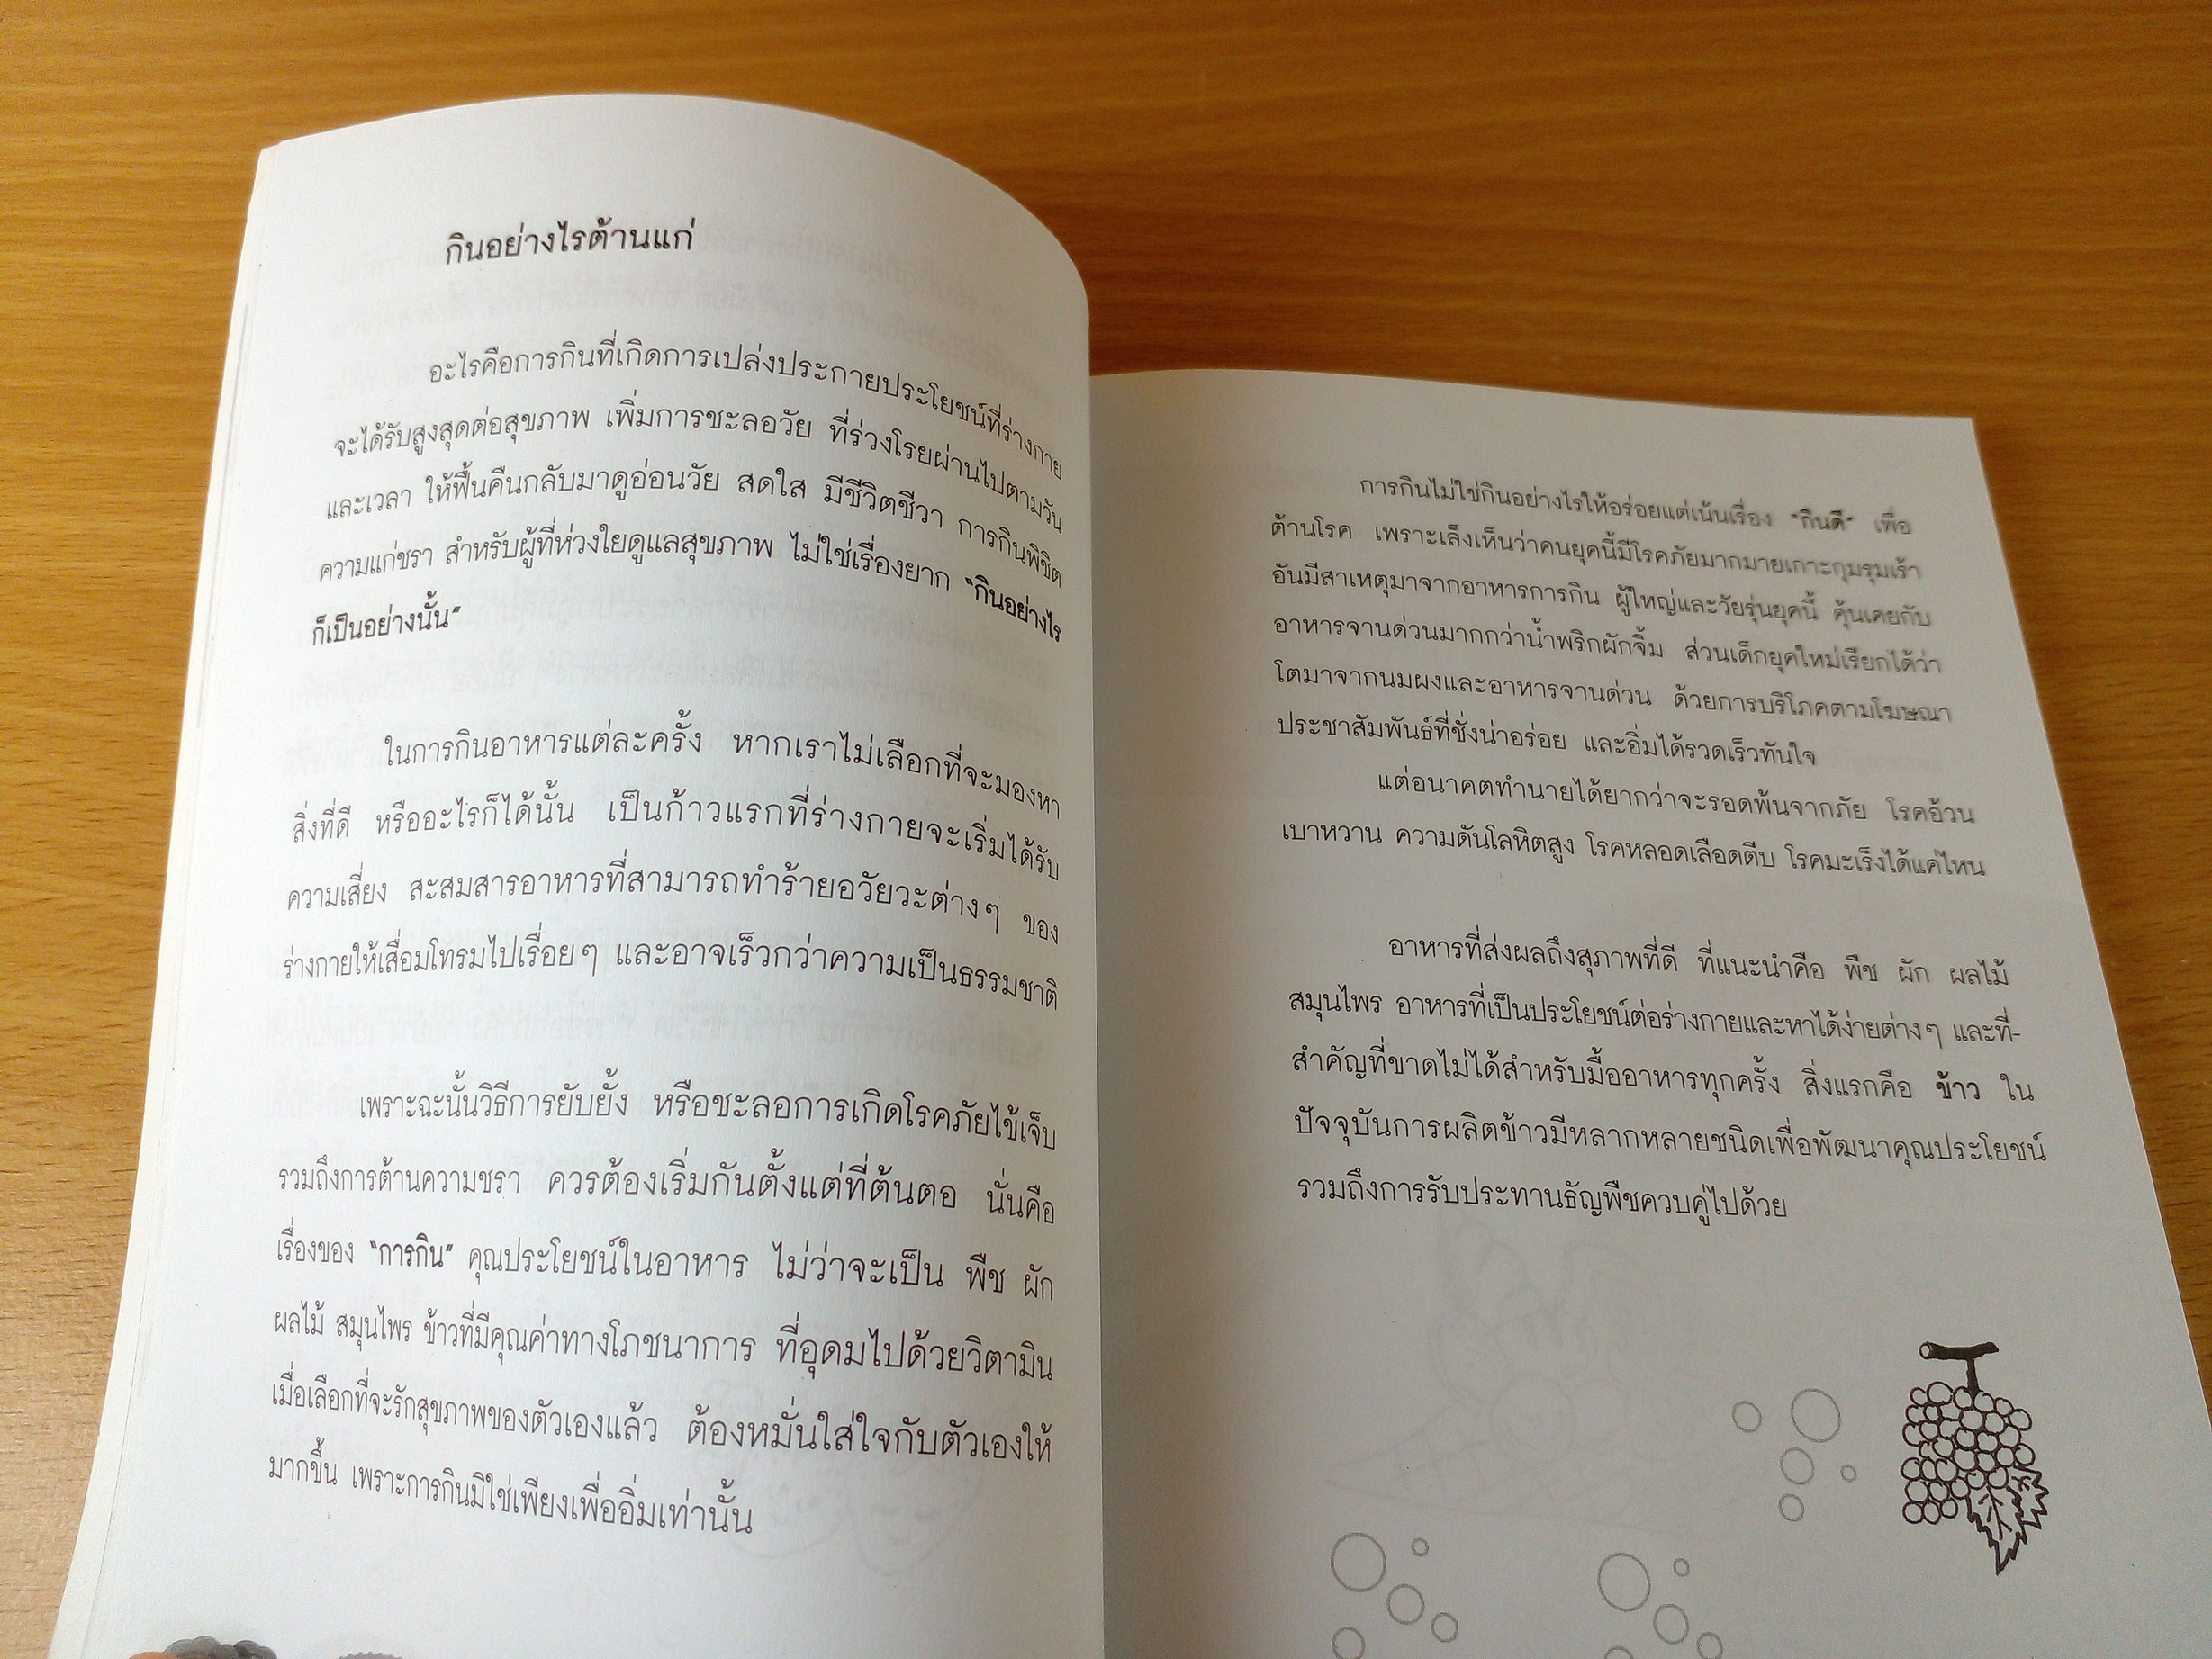 กินอย่างไรต้านแก่
อะไรคือการกินที่เกิดการเปล่งประกายประโยชน์ที่ร่างกาย
จะได้รับสูงสุดต่อสุขภาพ เพิ่มการชะลอวัย ที่ร่วงโรยผ่านไปตามวัน
และเวลา ให้ฟื้นคืนกลับมาดูอ่อนวัย สดใส มีชีวิตชีวา การกินพิชิต
ความแก่ชรา สำหรับผู้ที่ห่วงใยดูแลสุขภาพ ไม่ใช่เรื่องยาก "กินอย่างไร
ก็เป็นอย่างนั้น"
ในการกินอาหารแต่ละครั้ง หากเราไม่เลือกที่จะมองหา
สิ่งที่ดี หรืออะไรก็ได้นั้น เป็นก้าวแรกที่ร่างกายจะเริ่มได้รับ
ความเสี่ยง สะสมสารอาหารที่สามารถทำร้ายอวัยวะต่างๆ ของ
ร่างกายให้เสื่อมโทรมไปเรื่อยๆ และอาจเร็วกว่าความเป็นธรรมชาติ
เพราะฉะนั้นวิธีการยับยั้ง หรือชะลอการเกิดโรคภัยไข้เจ็บ
รวมถึงการต้านความชรา ควรต้องเริ่มกันตั้งแต่ที่ต้นตอ นั่นคือ
เรื่องของ "การกิน" คุณประโยชน์ในอาหาร ไม่ว่าจะเป็น พืช ผัก
ผลไม้ สมุนไพร ข้าวที่มีคุณค่าทางโภชนาการ ที่อุดมไปด้วยวิตามิน
เมื่อเลือกที่จะรักสุขภาพของตัวเองแล้ว ต้องหมั่นใส่ใจกับตัวเองให้
มากขึ้น เพราะการกินมิใช่เพียงเพื่ออิ่มเท่านั้น
การกินไม่ใช่กินอย่างไรให้อร่อยแต่เน้นเรื่อง "กินดี" เพื่อ
ต้านโรค เพราะเล็งเห็นว่าคนยุคนี้มีโรคภัยมากมายเกาะกุมรุมเร้า
อันมีสาเหตุมาจากอาหารการกิน ผู้ใหญ่และวัยรุ่นยุคนี้ คุ้นเคยกับ
อาหารจานด่วนมากกว่าน้ำพริกผักจิ้ม ส่วนเด็กยุคใหม่เรียกได้ว่า
โตมาจากนมผงและอาหารจานด่วน ด้วยการบริโภคตามโฆษณา
ประชาสัมพันธ์ที่ชั่งน่าอร่อย และอิ่มได้รวดเร็วทันใจ
แต่อนาคตทำนายได้ยากว่าจะรอดพ้นจากภัย โรคอ้วน
เบาหวาน ความดันโลหิตสูง โรคหลอดเลือดตีบ โรคมะเร็งได้แค่ไหน
อาหารที่ส่งผลถึงสุภาพที่ดี ที่แนะนำคือ พืช ผัก ผลไม้
สมุนไพร อาหารที่เป็นประโยชน์ต่อร่างกายและหาได้ง่ายต่างๆ และที่-
สำคัญที่ขาดไม่ได้สำหรับมื้ออาหารทุกครั้ง สิ่งแรกคือ ข้าว ใน
ปัจจุบันการผลิตข้าวมีหลากหลายชนิดเพื่อพัฒนาคุณประโยชน์
รวมถึงการรับประทานธัญพืชควบคู่ไปด้วย